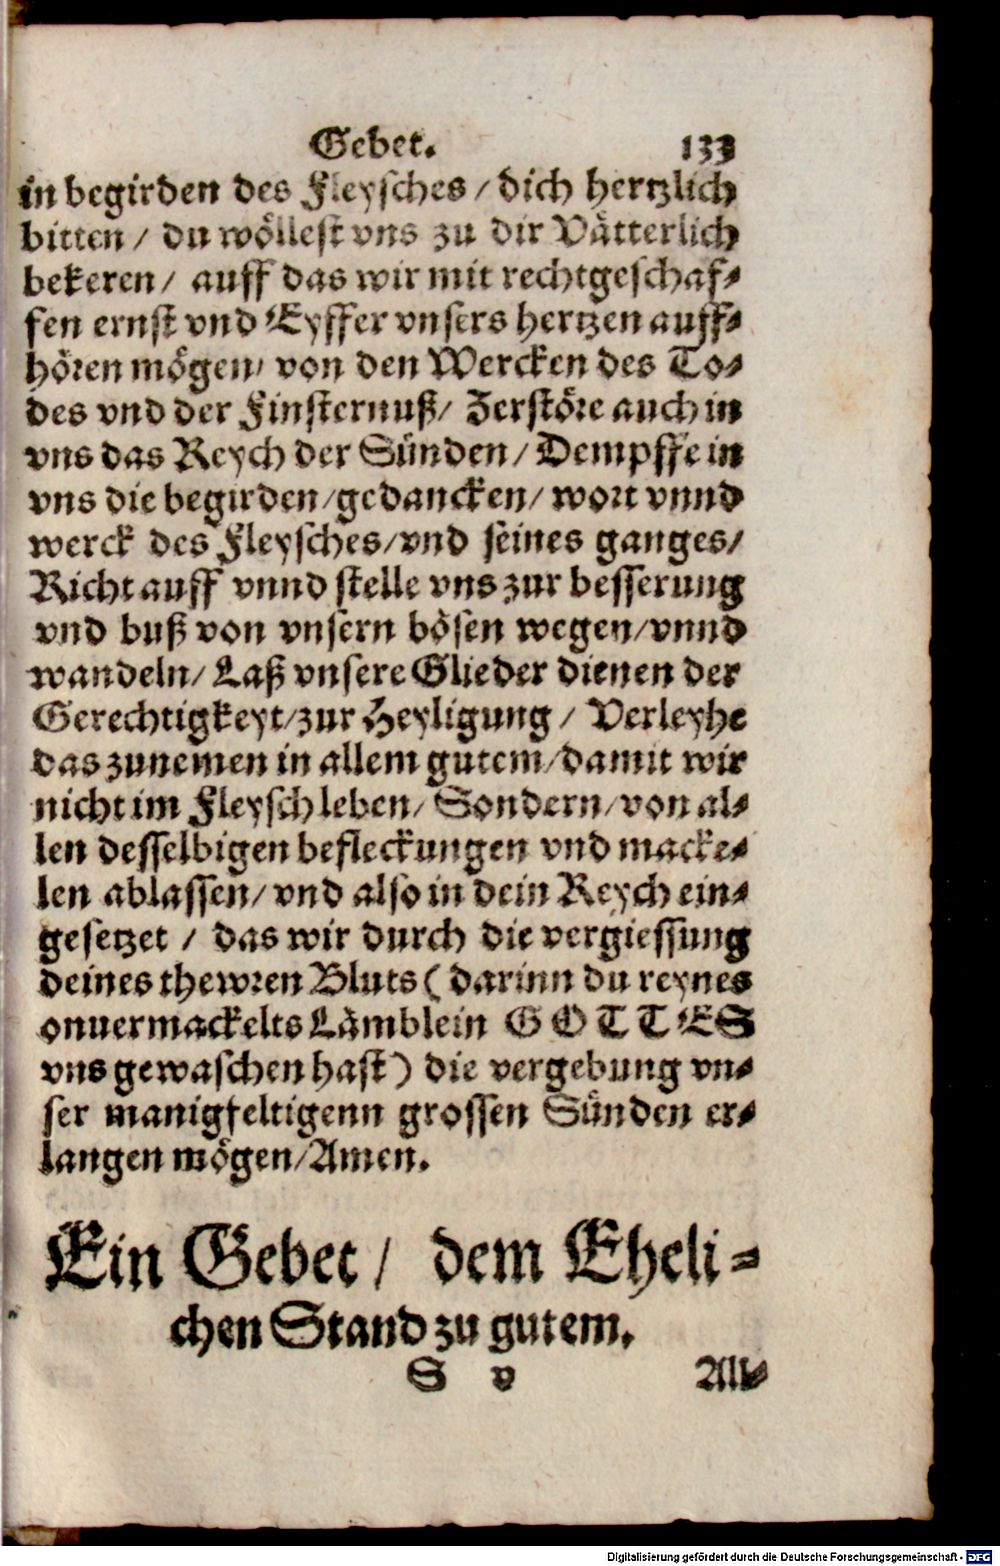 Gebet. 133
in begirden des Fleysches / dich hertzlich
bitten / du wöllest vns zu dir Vätterlich
bekeren / auff das wir mit rechtgeschaf-
fen ernst vnd Eyffer vnsers hertzen auff-
hören mögen / von den Wercken des To-
des vnd der Finsternuß / Zerstöre auch in
vns das Reych der Sünden / Dempffe in
vns die begirden / gedancken / wort vnnd
werck des Fleysches / vnd seines ganges /
Richt auff vnnd stelle vns zur besserung
vnd buß von vnsern bösen wegen / vnnd
wandeln / Laß vnsere Glieder dienen der
Gerechtigkeyt / zur Heyligung / Verleyhe
das zunemen in allem gutem / damit wir
nicht im Fleysch leben / Sondern / von al-
len desselbigen befleckungen vnd macke-
len ablassen / vnd also in dein Reych ein-
gesetzet / das wir durch die vergiessung
deines thewren Bluts ( darinn du reynes
onuermackelts Lämblein GOTTES
vns gewaschen hast ) die vergebung vn-
ser manigfeltigenn grossen Sünden er-
langen mögen / Amen.
Ein Gebet / dem Eheli-
chen Stand zu gutem.
S v All-
Digitalisierung gefördert durch die Deutsche Forschungsgemeinschaft - DFG